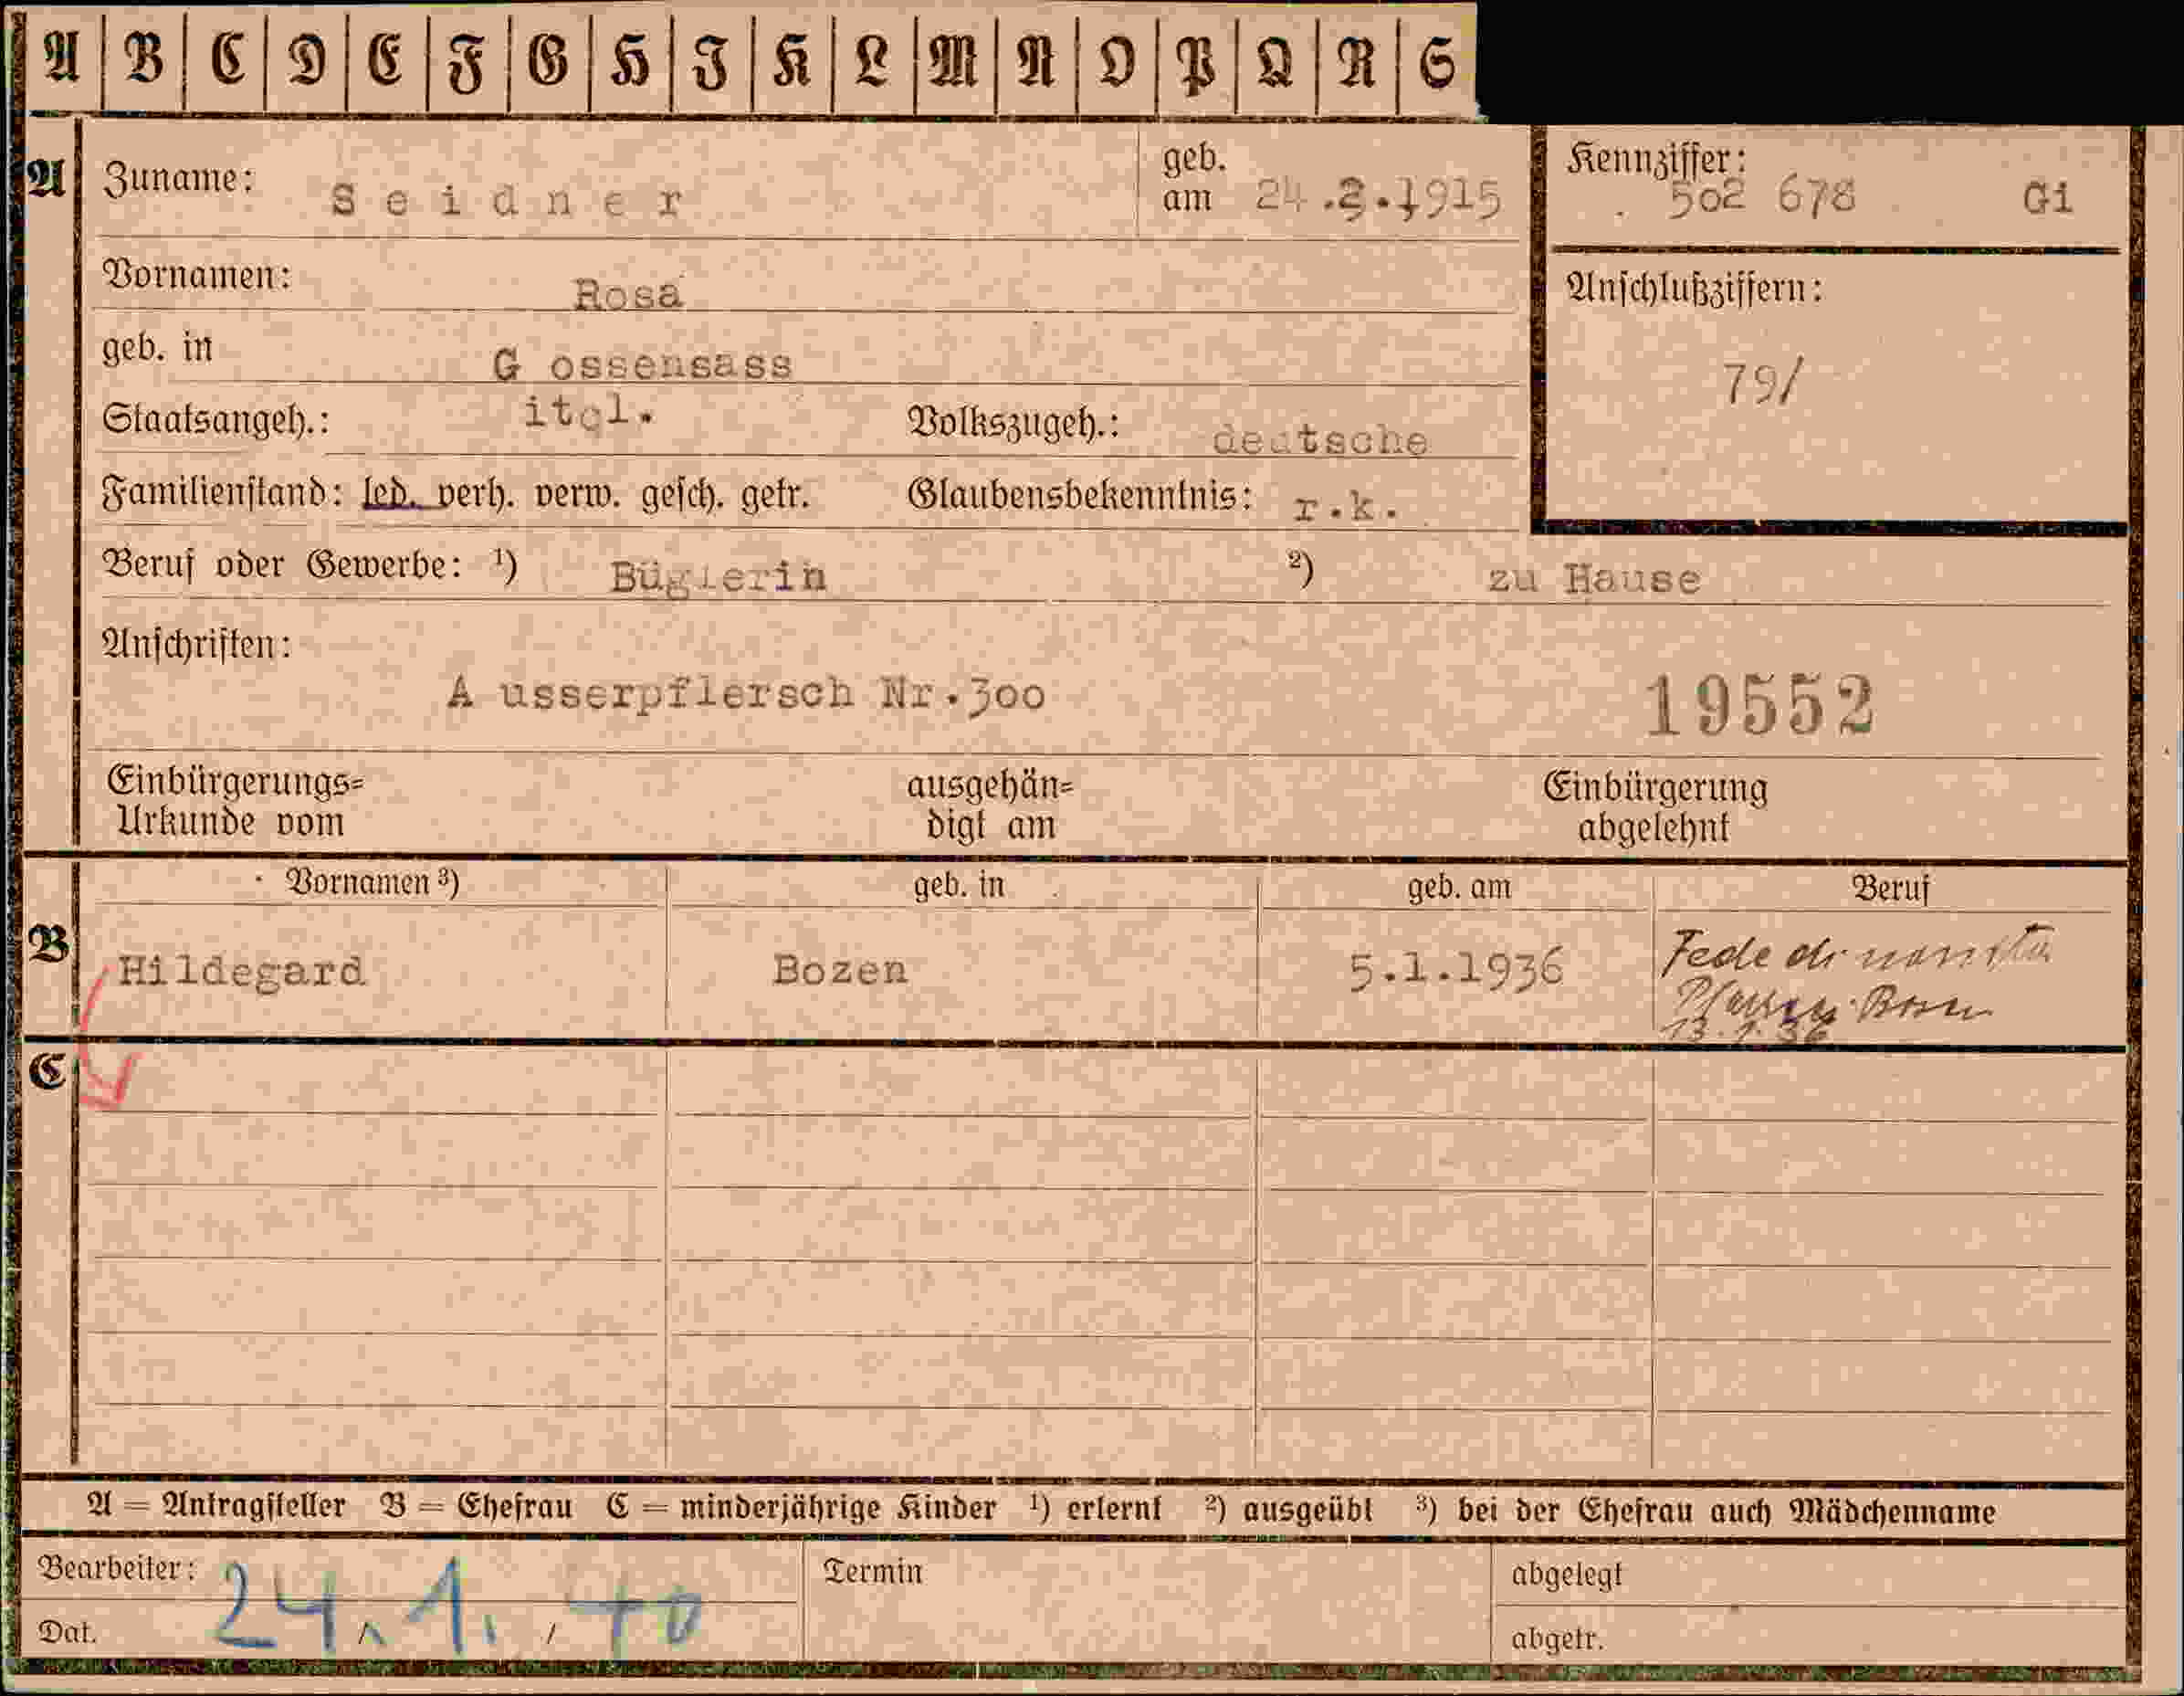 A B C D E F G H I K L M N O P Q R S
A Zuname: Seidner geb. am 24.2.1915 Kennziffer: 502 678 Gi
Vornamen: Rosa
Anschlußziffern:
geb. in G ossensass
79/
Staatsangeh.: ital. Volkszugeh.: deutsche
Familienstand: led. verh. verw. gesch. getr. Glaubensbekenntnis: r.k.
Beruf oder Gewerbe: ¹) Büglerin ²) zu Hause
Anschriften:
A usserpflersch Nr.300 19552
Einbürgerungs= ausgehän= Einbürgerung
Urkunde vom digt am abgelehnt
Vornamen ³) geb. in geb. am Beruf
B Hildegard Bozen 5.1.1936 Fede di
Bozen
13.1.36
C
A = Antragsteller B = Ehefrau C = minderjährige Kinder ¹) erlernt ²) ausgeübt ³) bei der Ehefrau auch Mädchenname
Bearbeiter: Termin abgelegt
Dat. 24.1.40 abgetr.